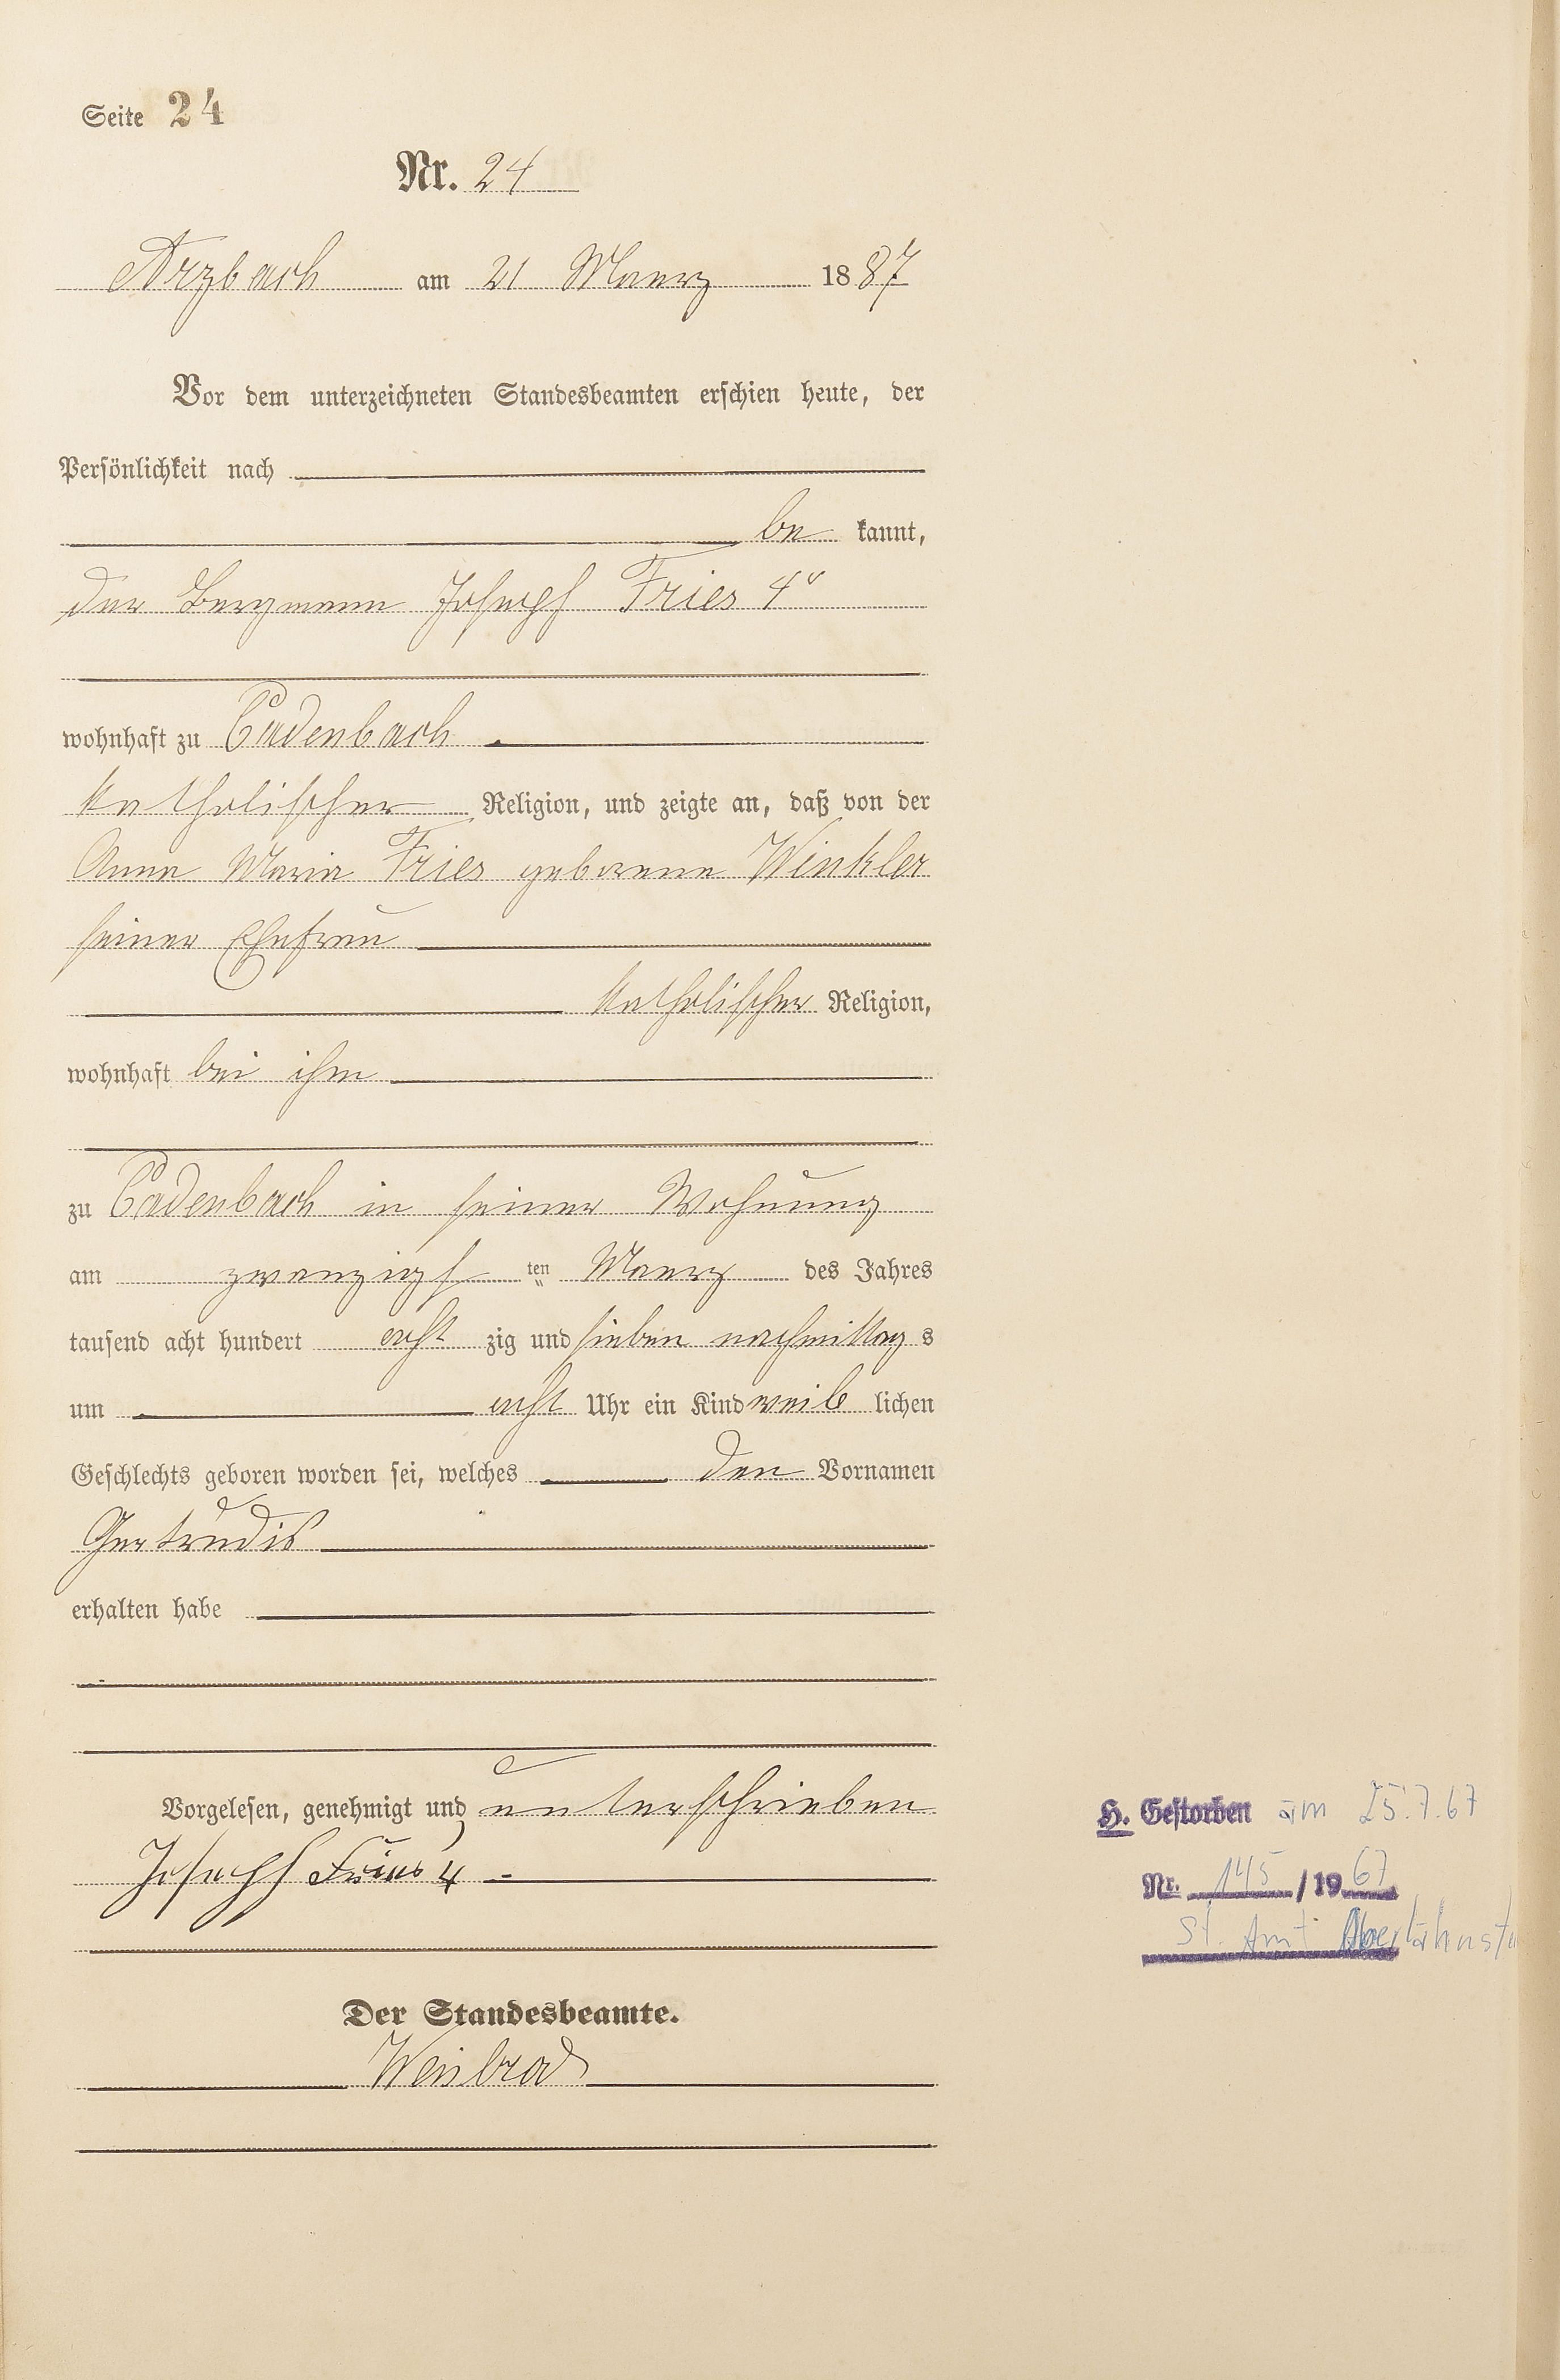 Seite 24
Nr. 24
Arzbach am 21 Maerz 1887
Vor dem unterzeichneten Standesbeamten erschien heute, der
Persönlichkeit nach
be kannt,
der Bergmann Joseph Fries 4r
wohnhaft zu Cadenbach
katholischer Religion, und zeigte an, daß von der
Anna Maria Fries geborene Winkler
seiner Ehefrau
katholischer Religion,
wohnhaft bei ihm
zu Cadenbach in seiner Wohnung
am zwanzigs ten Maerz des Jahres
tausend acht hundert acht zig und sieben nachmittag s
um acht Uhr ein Kind weib lichen
Geschlechts geboren worden sei, welches den Vornamen
Gertrudis
erhalten habe
Vorgelesen, genehmigt und unterschrieben
Joseph Fries 4
Der Standesbeamte.
Weisbrod
H. Gestorben am 25.7.67
Nr. 145/1967
St. Amt